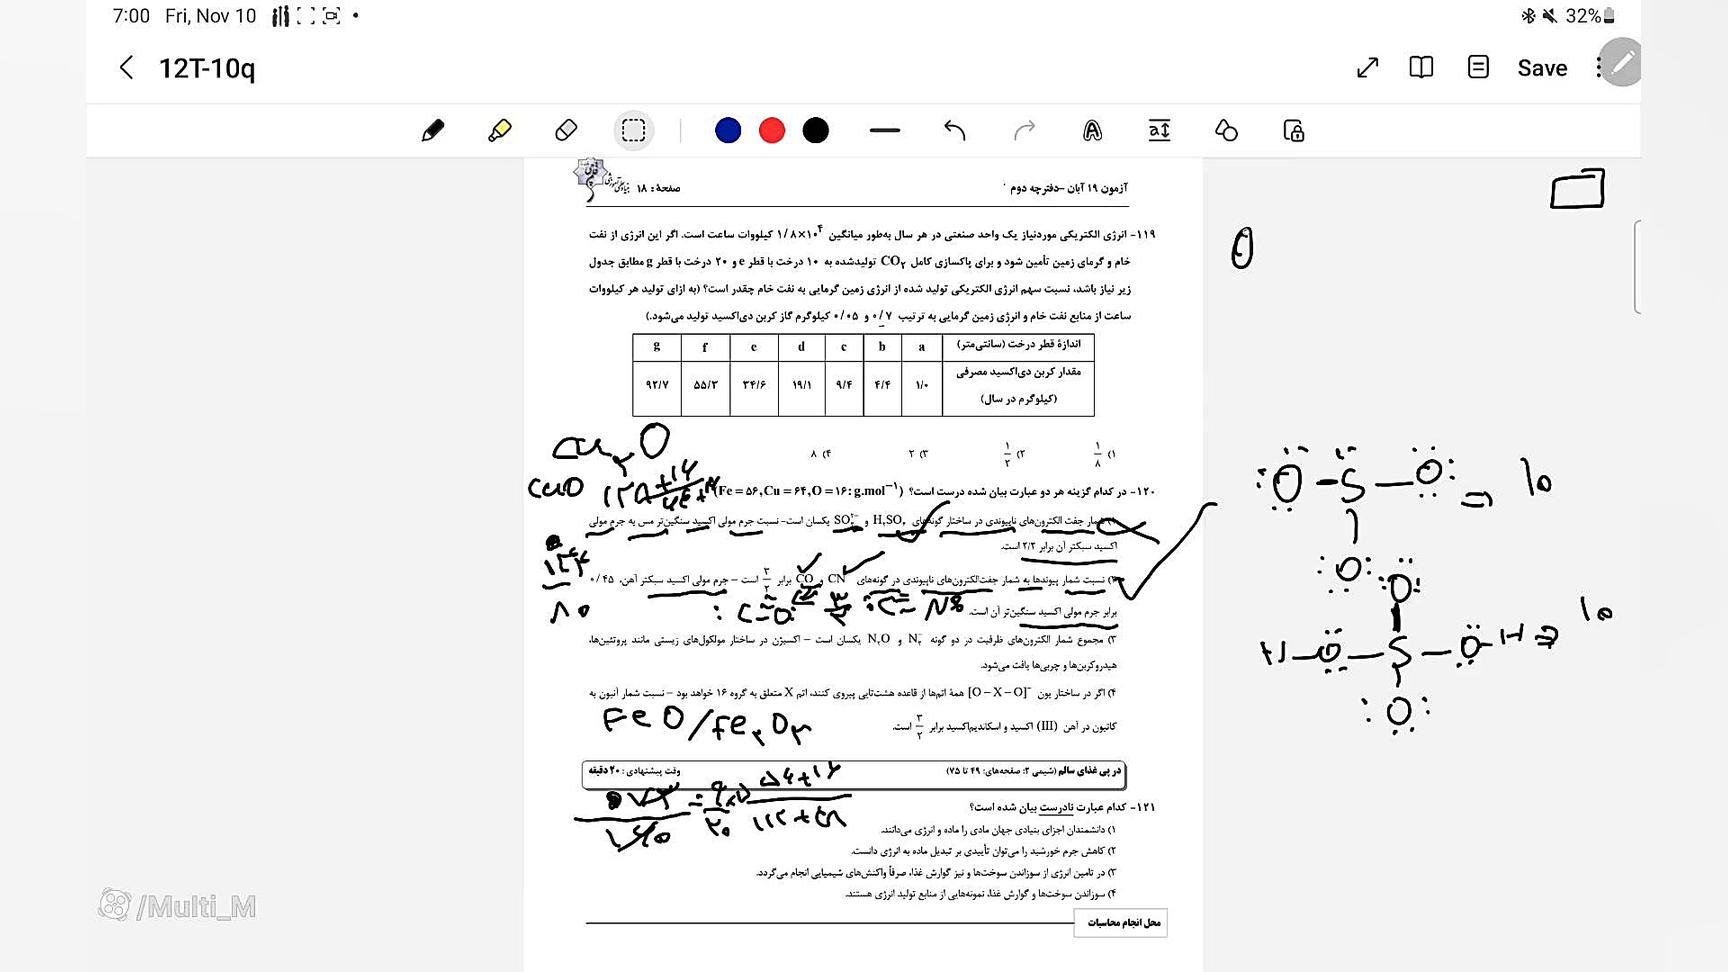 7:00 Fri, Nov 10
32%
12T-10q
Save
آزمون ۱۹ آبان -دفترچه دوم
صفحهٔ: ۱۸
۱۱۹- انرژی الکتریکی موردنیاز یک واحد صنعتی در هر سال به‌طور میانگین ۱/۸×۱۰^۴ کیلووات ساعت است. اگر این انرژی از نفت
خام و گرمای زمین تأمین شود و برای پاکسازی کامل CO₂ تولیدشده به ۱۰ درخت با قطر e و ۲۰ درخت با قطر g مطابق جدول
زیر نیاز باشد، نسبت سهم انرژی الکتریکی تولید شده از انرژی زمین گرمایی به نفت خام چقدر است؟ (به ازای تولید هر کیلووات
ساعت از منابع نفت خام و انرژی زمین گرمایی به ترتیب ۰/۷ و ۰/۰۵ کیلوگرم گاز کربن دی‌اکسید تولید می‌شود.)
اندازهٔ قطر درخت (سانتی‌متر) a b c d e f g
مقدار کربن دی‌اکسید مصرفی (کیلوگرم در سال) ۱/۰ ۴/۴ ۹/۴ ۱۹/۱ ۳۴/۶ ۵۵/۳ ۹۲/۷
۱) ۱/۸ ۲) ۱/۲ ۳) ۲ ۴) ۸
Cu₂O
CuO
۱۲۰- در کدام گزینه هر دو عبارت بیان شده درست است؟ (Fe=۵۶, Cu=۶۴, O=۱۶: g.mol⁻¹)
۱) شمار جفت الکترون‌های ناپیوندی در ساختار گونه‌های H₂SO₄ و SO₃²⁻ یکسان است- نسبت جرم مولی اکسید سنگین‌تر مس به جرم مولی
اکسید سبکتر آن برابر ۲/۲ است.
۲) نسبت شمار پیوندها به شمار جفت‌الکترون‌های ناپیوندی در گونه‌های CN⁻ و CO برابر ۳/۲ است – جرم مولی اکسید سبکتر آهن، ۰/۴۵
برابر جرم مولی اکسید سنگین‌تر آن است.
:C≡O: :C≡N:
۱۴۴
۸۰
۳) مجموع شمار الکترون‌های ظرفیت در دو گونه N₃⁻ و N₂O یکسان است – اکسیژن در ساختار مولکول‌های زیستی مانند پروتئین‌ها،
هیدروکربن‌ها و چربی‌ها یافت می‌شود.
۴) اگر در ساختار یون [O–X–O]⁻ همهٔ اتم‌ها از قاعده هشت‌تایی پیروی کنند، اتم X متعلق به گروه ۱۶ خواهد بود – نسبت شمار آنیون به
کاتیون در آهن (III) اکسید و اسکاندیم‌اکسید برابر ۳/۲ است.
FeO/Fe₂O₃
در پی غذای سالم (شیمی ۲: صفحه‌های: ۴۹ تا ۷۵)
وقت پیشنهادی: ۲۰ دقیقه
۱۲۱- کدام عبارت نادرست بیان شده است؟
۱) دانشمندان اجزای بنیادی جهان مادی را ماده و انرژی می‌دانند.
۲) کاهش جرم خورشید را می‌توان تأییدی بر تبدیل ماده به انرژی دانست.
۳) در تامین انرژی از سوزاندن سوخت‌ها و نیز گوارش غذا، صرفاً واکنش‌های شیمیایی انجام می‌گردد.
۴) سوزاندن سوخت‌ها و گوارش غذا، نمونه‌هایی از منابع تولید انرژی هستند.
محل انجام محاسبات
O S O ۱۰
O
O
H–O–S–O–H ۱۰
O
/Multi_M